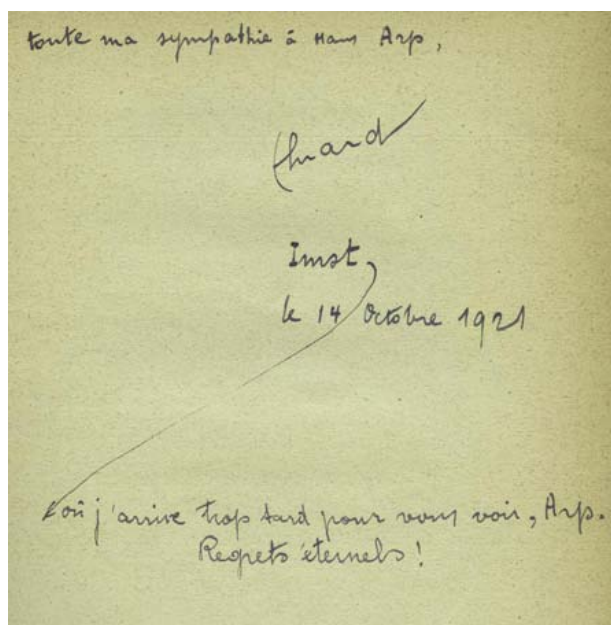 toute ma sympathie à Hans Arp,
Eluard
Imst
le 14 Octobre 1921
où j'arrive trop tard pour vous voir, Arp.
Regrets éternels !